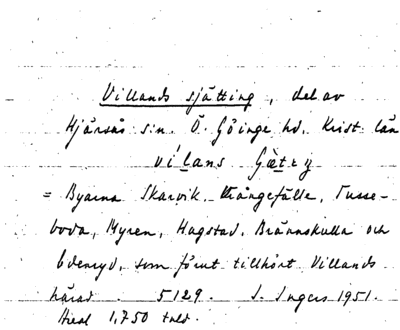 Villands sjätting, del av
Hjärsås sn. Ö. Göinge hd. Krist. län
= Byarna Skarvik, Krångefälle, Tusse-
boda, Myren, Hagstad, Brännskulla och
som förut tillhört Villands
härad. 5129. I. Ingers 1951.
1,750